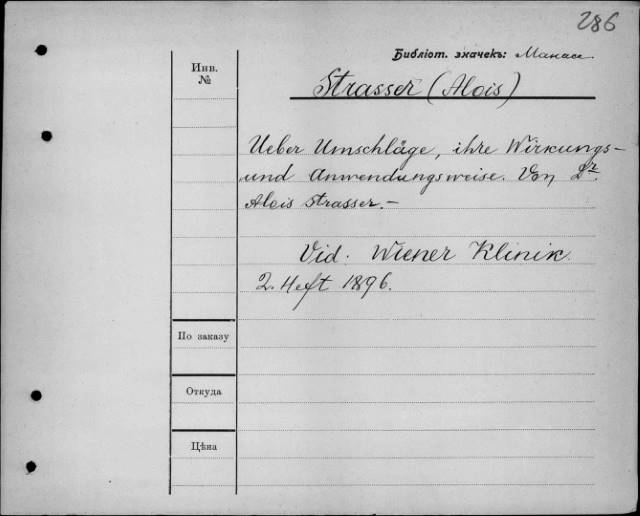 286
Библіот. значекъ: Манасе
Инв.
№
Strasser (Alois)
Ueber Umschläge, ihre Wirkungs-
und Anwendungsweise. Von Dr.
Alois Strasser.—
Vid. Wiener Klinik.
2. Heft 1896.
По заказу
Откуда
Цѣна